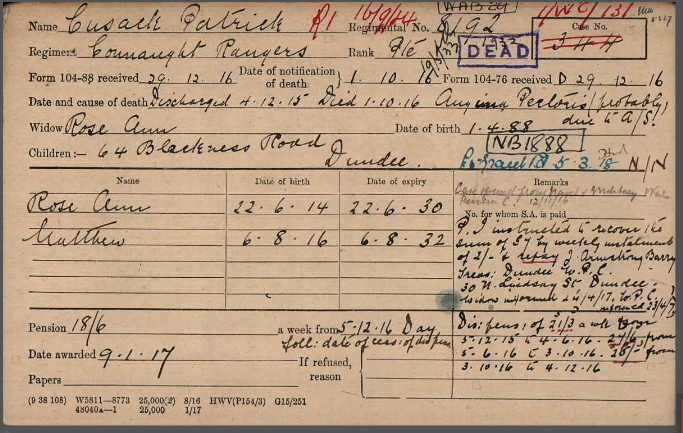 Name Cusack Patrick R1 16/9/14 Regimental No. 8192
Regiment Connaught Rangers Rank Pte DEAD Case No.
Form 104-88 received 29. 12. 16 Date of notification of death 1. 10. 16 Form 104-76 received D 29. 12. 16
Date and cause of death Discharged 4.12.15 Died 1.10.16 Angina Pectoris (probably,
due to A/S.
Widow Rose Ann Date of birth 1.4.88
NB1888
Children:— 64 Blackness Road
Dundee. 5.3.18 N/N
Name Date of birth Date of expiry Remarks
Rose Ann 22.6.14 22.6.30
Matthew 6.8.16 6.8.32
No. for whom S.A. is paid
P.I instructed to recover the
sum of £7 by weekly instalments
of 2/- & repay J. Armstrong Barry
Treas: Dundee W.P.C.
30 N. Lindsay St Dundee.
Widow informed 24/4/17. W.P.C.
informed 23/4/17
Pension 18/6 a week from 5.12.16 Day
foll: date of cess: of dis pen
Date awarded 9.1.17 If refused, reason
Papers
Dis: pens: of 21/3 a wk from
5.12.15 to 4.6.16. 27/6 from
5.6.16 to 3.10.16. 25/- from
3.10.16 to 4.12.16
(9 38 108) W5811—8773 25,000(2) 8/16 HWV(P154/3) G15/251
48040A—1 25,000 1/17